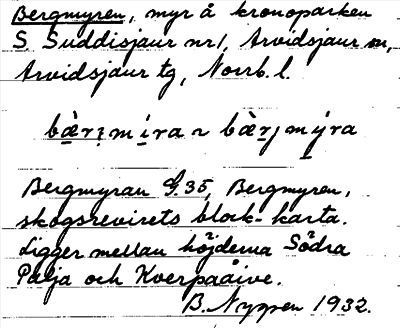 Bergmyren, myr å kronoparken
S Suddisjaur nr 1, Arvidsjaur sn,
Arvidsjaur tg, Norrb. l.
bæ̀rı̣mı́ra ~ bæ̀rı̣mýra
Bergmyran G.35, Bergmyren,
skogsrevirets block-karta.
Ligger mellan höjderna Södra
Palja och Kverpaåive.
B. Nyppen 1932.